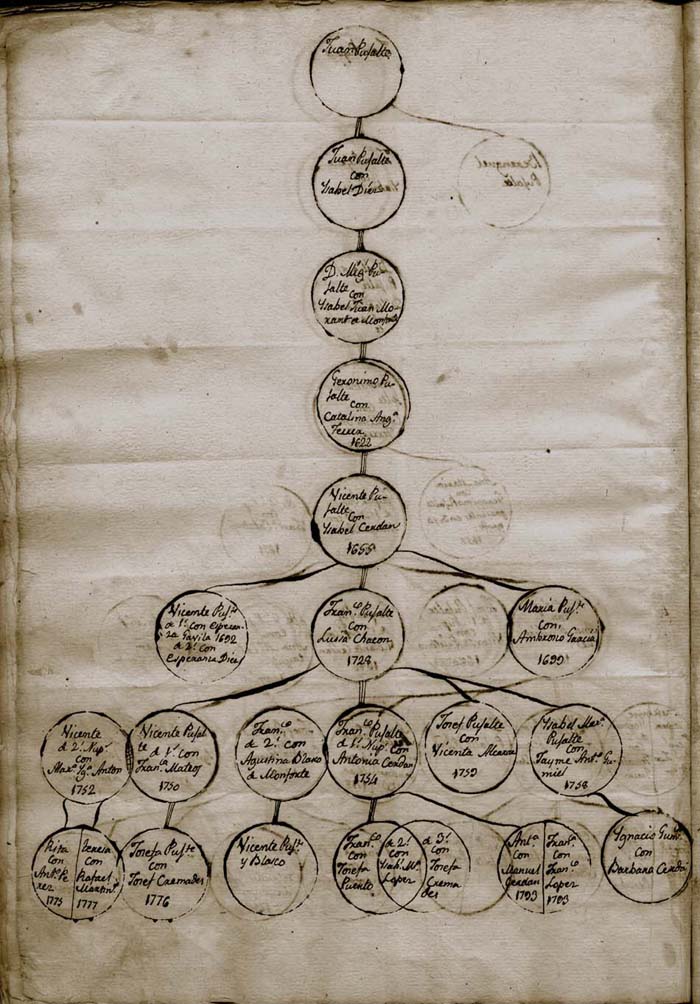 Juan Pujalte
Juan Pujalte
con
Ysabel Diez
D. Mig.l Pu-
jalte
con
Ysabel Juan Mo-
rant de Monforte
Geronimo Pu-
jalte
con
Catalina Ang.a
1622
Vicente Pu-
jalte
con
Ysabel Cerdan
1655
Vicente Puj.te
de 1.s con Esperan-
za Gavila 1692
de 2.s con
Esperanza Diez
Fran.co Pujalte
con
Luisa Chacon
1728
Maria Puj.te
con
Ambrosio Gracia
1699
Vicente
de 2.s Nup.s
con
Anton
1752
Vicente Pujal-
te de 1.s con
Fran.ca Mateo
1750
Fran.co
de 2.s con
Agustina Blasco
de Monforte
Fran.co Pujalte
de 1.s Nup.s con
Antonia Cerdan
1754
Josef Pujalte
con
Vicenta Alcaraz
1759
Ysabel Mar.a
Pujalte
con
Jayme Ant.o Gu-
miel
1758
Rita
con
Ant.o Pe-
rez
1775
Teresa
con
Rafael
Martin.z
1777
Josefa Puj.te
con
Josef Cremades
1776
Vicente Puj.te
y Blasco
Fran.co
con
Josefa
Puerto
de 2.s
con
Ysab.l M.a
Lopez
de 3.s
con
Josefa
Crema
des
Ant.a
con
Manuel
Cerdan
1793
Fran.ca
con
Fran.co
Lopez
1793
Ignacio Gum.l
con
Barbara Cerda